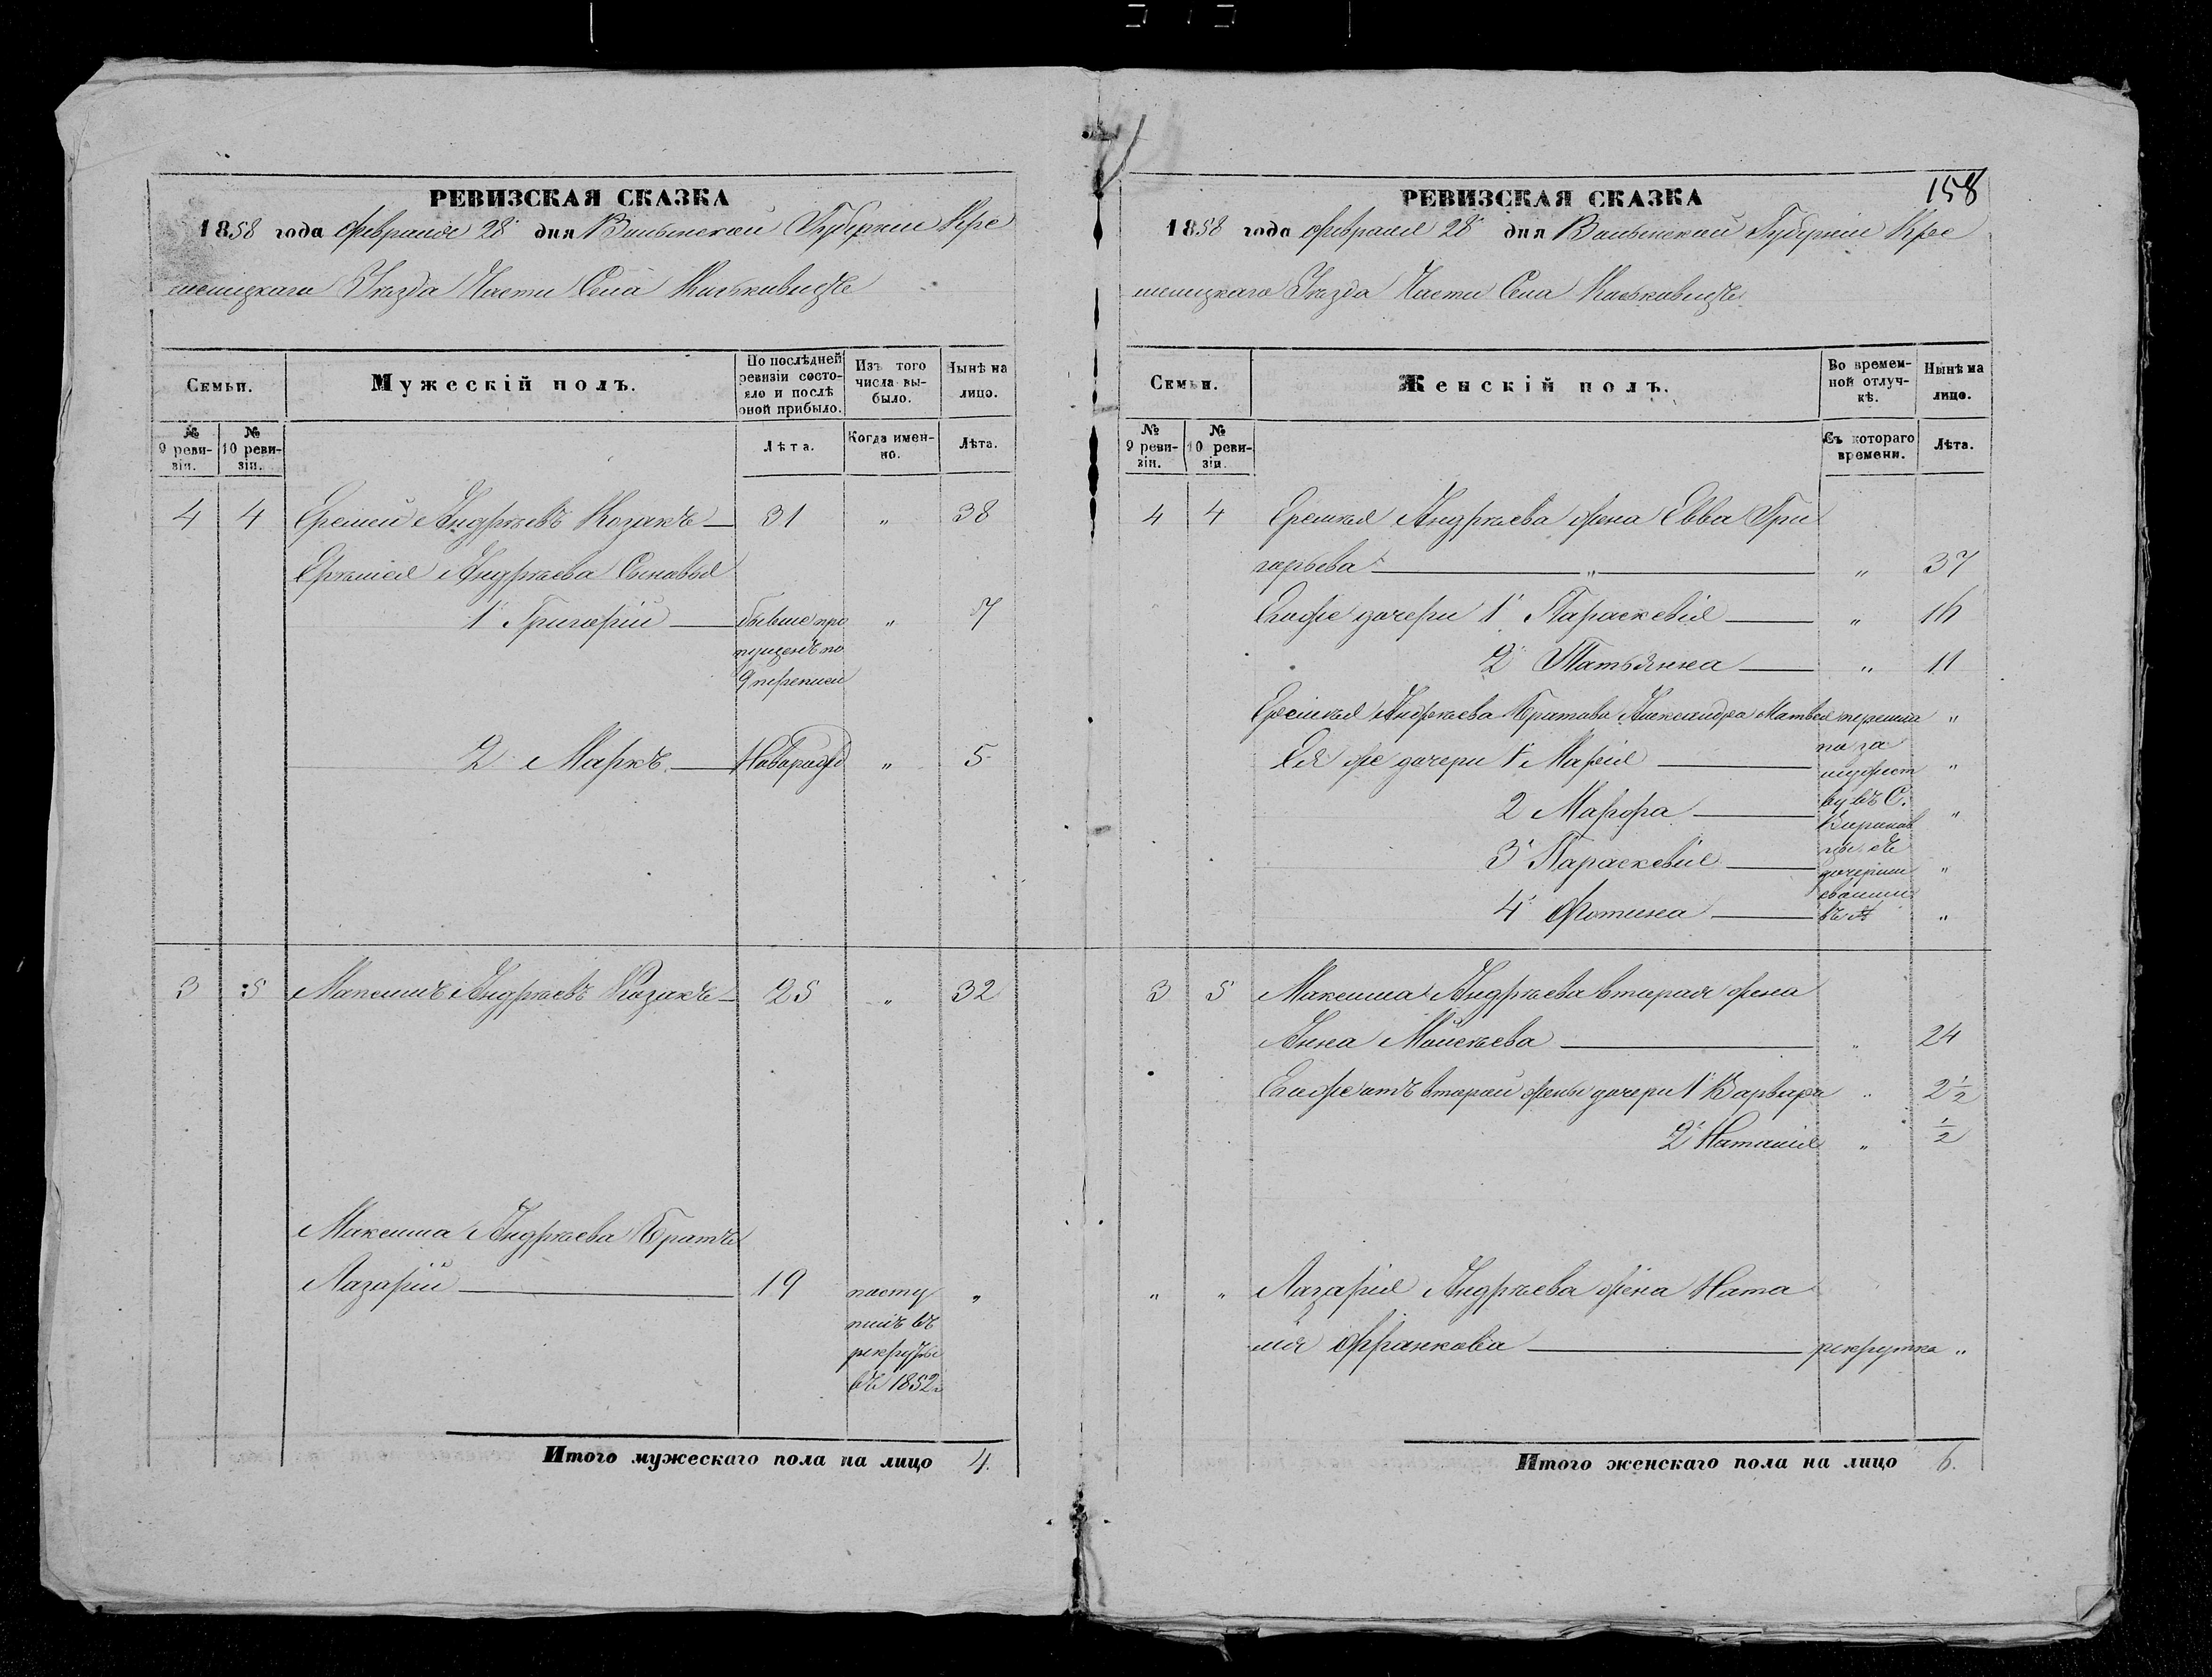 РЕВИЗСКАЯ СКАЗКА
1858 года Февраля 28 дня Волынской Губернии Кре
менецкаго Уезда Части Села Маськовецъ
Семьи.
Мужескій полъ.
По послѣдней ревизіи состояло и послѣ оной прибыло.
Изъ того числа выбыло.
Нынѣ на лицо.
№ 9 ревизіи.
№ 10 ревизіи.
Лѣта.
Когда именно.
Лѣта.
4 4 Еремей Андреевъ Козакъ 31 " 38
Еремея Андреева Сыновья
1 Григорій бывше про " 7
пущенъ по
9 переписи
2 Марко Новорожд " 5
3 5 Максимъ Андреевъ Козакъ 25 " 32
Максима Андреева Братъ
Лазарій 19 посту "
пилъ въ
рекруты
въ 1852
Итого мужескаго пола на лицо 4.
158
РЕВИЗСКАЯ СКАЗКА
1858 года Февраля 28 дня Волынской Губерніи Кре
менецкаго Уезда Части Села Маськовецъ
Семьи.
Женскій полъ.
Во временной отлучкѣ.
Нынѣ на лицо.
№ 9 ревизіи.
№ 10 ревизіи.
Съ котораго времени.
Лѣта.
4 4 Еремея Андреева жена Евва Гри
горьева " " 37
Егоже дочери 1 Параскевія " 16
2 Татьянна " 11
Еремея Андреева Братова Александра Матвея перешла "
по за
Ея же дочери 1 Марія "
мужест
ву въ С.
2 Марфа "
3 Параскевія "
дочерьми
своими
4 Фотина "
3 5 Максима Андреева вторая жена
Анна Моисеева " 24
Егоже отъ второй жены дочери 1 Варвара " 2 1/2
2 Наталія " 1/2
" " Лазарія Андреева жена Ната
лія Франкова рекрутка "
Итого женскаго пола на лицо 6.